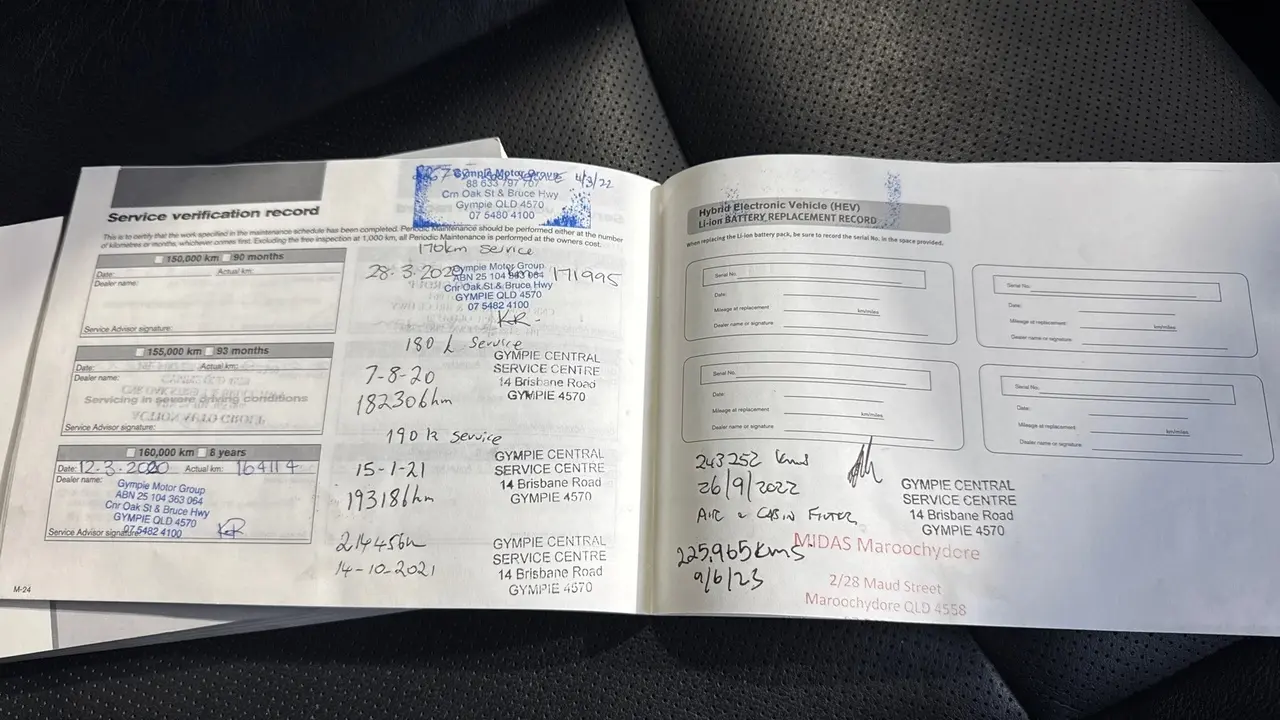 Service verification record
This is to certify that the work specified in the maintenance schedule has been completed. Periodic Maintenance should be performed either at the number
of kilometres or months, whichever comes first. Excluding the free inspection at 1,000 km, all Periodic Maintenance is performed at the owners cost.
150,000 km 90 months
Date: Actual km:
Dealer name:
Service Advisor signature:
155,000 km 93 months
Date: Actual km:
Dealer name:
Servicing in severe driving conditions
Service Advisor signature:
160,000 km 8 years
Date: 12-3-2020 Actual km: 164114
Dealer name:
Gympie Motor Group
ABN 25 104 363 064
Cnr Oak St & Bruce Hwy
GYMPIE QLD 4570
07 5482 4100
Service Advisor signature:
M-24
Gympie Motor Group 4/3/22
88 633 797 767
Cnr Oak St & Bruce Hwy
Gympie QLD 4570
07 5480 4100
170km Service
28-3-2020 Gympie Motor Group 171995
ABN 25 104 363 064
Cnr Oak St & Bruce Hwy
GYMPIE QLD 4570
07 5482 4100
180 k Service
7-8-20
182306km
GYMPIE CENTRAL
SERVICE CENTRE
14 Brisbane Road
GYMPIE 4570
190 k Service
15-1-21
193186km
GYMPIE CENTRAL
SERVICE CENTRE
14 Brisbane Road
GYMPIE 4570
214456km
14-10-2021
GYMPIE CENTRAL
SERVICE CENTRE
14 Brisbane Road
GYMPIE 4570
Hybrid Electronic Vehicle (HEV)
Li-ion BATTERY REPLACEMENT RECORD
When replacing the Li-ion battery pack, be sure to record the serial No. in the space provided.
Serial No.
Date:
Mileage at replacement km/miles
Dealer name or signature
Serial No.
Date:
Mileage at replacement: km/miles
Dealer name or signature:
Serial No.
Date:
Mileage at replacement km/miles
Dealer name or signature
Serial No.
Date:
Mileage at replacement: km/miles
Dealer name or signature:
243252 kms
26/9/2022
AIR & CABIN FILTER
GYMPIE CENTRAL
SERVICE CENTRE
14 Brisbane Road
GYMPIE 4570
225,965 kms
9/6/23
MIDAS Maroochydore
2/28 Maud Street
Maroochydore QLD 4558